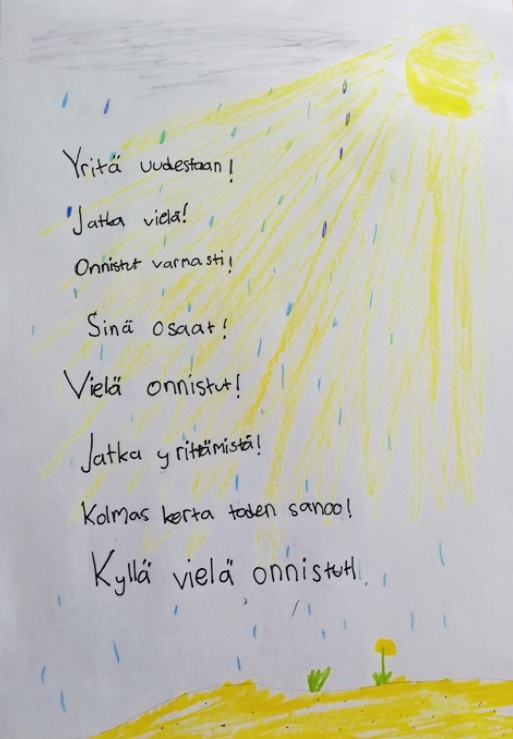 Yritä uudestaan!
Jatka vielä!
Onnistut varmasti!
Sinä osaat!
Vielä onnistut!
Jatka yrittämistä!
Kolmas kerta toden sanoo!
Kyllä vielä onnistut!